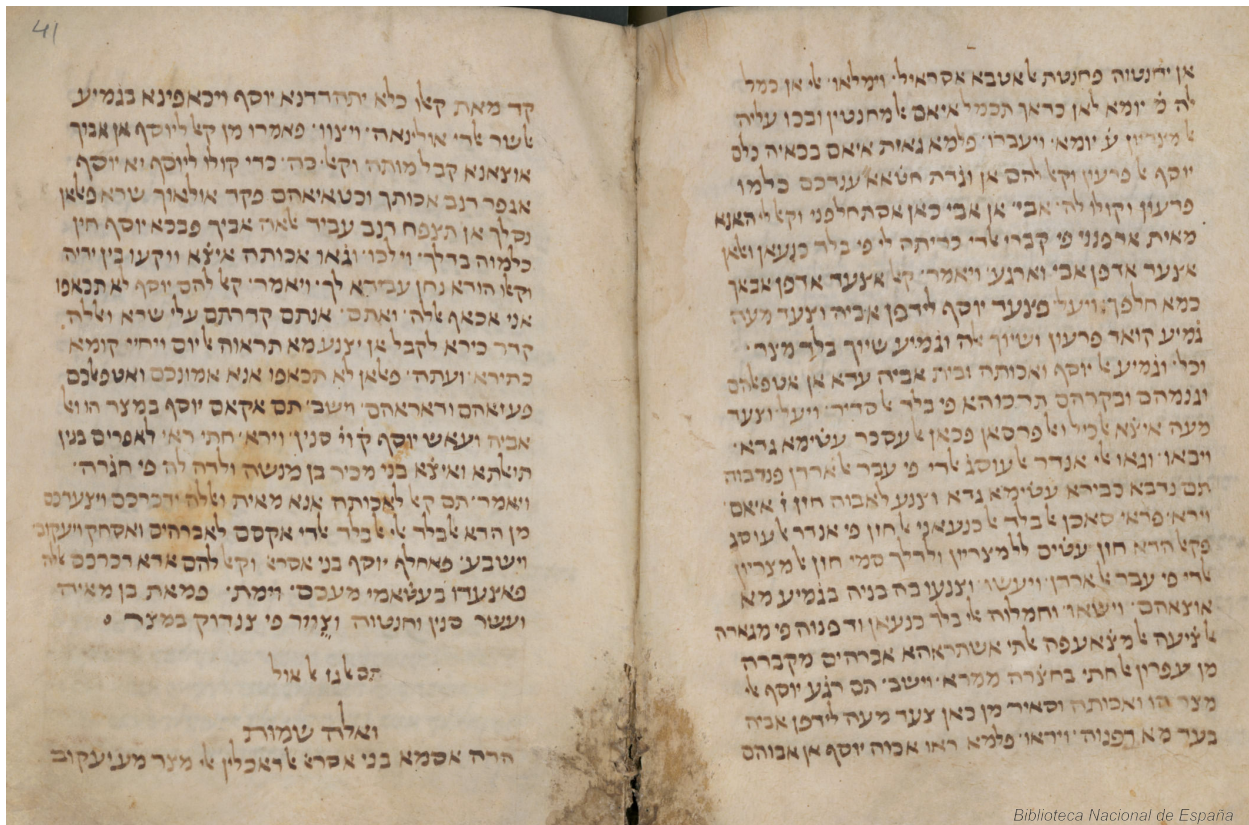 אן יחנטוה פחנטת אלאטבא אסראיל׳ וימלאו׳ אלי אן כמל
לה מ֗ יומא לאן כדאך תכמל איאם אלמחנטין ובכו עליה
אלמצריון ע֗ יומא׳ ויעברו׳ פלמא גאזת איאם בכאיה כלם
יוסף אל פרעון וקאל להם אן וגדת חט̇א ענדכם כלמו
פרעון וקולו לה׳ אבי׳ אן אבי כאן אסתחלפני וקאל לי האנא
מאית אדפנני פי קברי אלדי כריתה לי פי בלד כנעאן ואלאן
אצעד אדפן אבי וארגע׳ ויאמר׳ קאל אצעד אדפן אבאך
כמא חלפך׳ ויעל פצעד יוסף לידפן אביה וצעד מעה
גמיע קואד פרעון ושיוך אלה וגמיע שיוך בלד מצר׳
וכל׳ וגמיע אל יוסף ואכותה ובית אביה עדא אן אטפאלהם
וגנמהם ובקרהם תרכוהא פי בלד אלסדיר׳ ויעל וצעד
מעה איצ̇א אלכיל ואלפרסאן פכאן אלעסכר עט̇ימא גדא׳
ויבאו׳ וגאו אלי אנדר אלעוסג אלדי פי עבר אלארדן פנדבוה
תם נדבא כבירא עט̇ימא גדא וצנע לאבוה חזן ז֗ איאם׳
וירא׳ פראי סאכן אלבלד אלכנעאני אלחזן פי אנדר אלעוסג
פקאל הדא חזן עט̇ים ללמצריין ולדלך סמי חזן אלמצריון
אלדי פי עבר אלארדן׳ ויעשו׳ וצנעו בה בניה בגמיע מא
אוצאהם׳ וישאו׳ וחמלוה אלי בלד כנעאן ודפנוה פי מגארה
אלציעה אלמצ̇אעפה אלתי אשתראהא אברהים מקברה
מן עפרון אלחתי בחצ̇רה ממרא׳ וישב׳ תם רגע יוסף אלי
מצר הו ואכותה וסאיר מן כאן צעד מעה לידפן אביה
בעד מא דפניה׳ ויראו׳ פלמא ראו אכוה יוסף אן אבוהם
קד מאת קאלו כלא יתהדדנא יוסף ויכאפינא בגמיע
אלשר אלדי אולינאה׳ ויצוו׳ פאמרו מן קאל ליוסף אן אביך
אוצאנא קבל מותה וקאל׳ כה׳ כדי קולו ליוסף יא יוסף
אגפר דנב אכותך וכטאיאהם פקד אולאוך שרא פאלאן
נסלך אן תצפח דנב עביד אלאה אביך פבכא יוסף חין
כלמוה בדלך׳ וילכו׳ וגאו אכותה איצ̇א ווקעו בין ידיה
וקאלו הודא נחן עבידא לך׳ ויאמר׳ קאל להם יוסף לא תכאפו
אני אכאף אללה׳ ואתם׳ אנתם קדרתם עלי שרא ואללה
קדר כירא לקבל אן יצנע מא תראוה אליום ויחיי קומא
כתירא׳ ועתה׳ פאלאן לא תכאפו אנא אמונכם ואטפאלכם
פעיאהם ודאראהם׳ וישב׳ תם אקאם יוסף במצר הו ואל
אביה ועאש יוסף ק֗ו֗י֗ סנין׳ וירא׳ חתי ראי לאפרים בנין
תואלתא ואיצ̇א בני מכיר בן מנשה ולדה לה פי חגרה׳
ויאמר׳ תם קאל לאכותה אנא מאית ואללה ידכרכם ויצעדכם
מן הדא אלבלד אלי אלבלד אלדי אקסם לאברהים ואסחק ויעקוב
וישבע׳ פאחלף יוסף בני אסרא׳ וקאל להם אדא דכרכם אללה
פאצעדו בעט̇אמי מעכם׳ וימת׳ פמאת בן מאיה
ועשר סנין וחנטוה וצייר פי צנדוק במצר
אלגזו אלאול
ואלה שמות
הדה אסמא בני אסרא אלדאכלין אלי מצר מע יעקוב